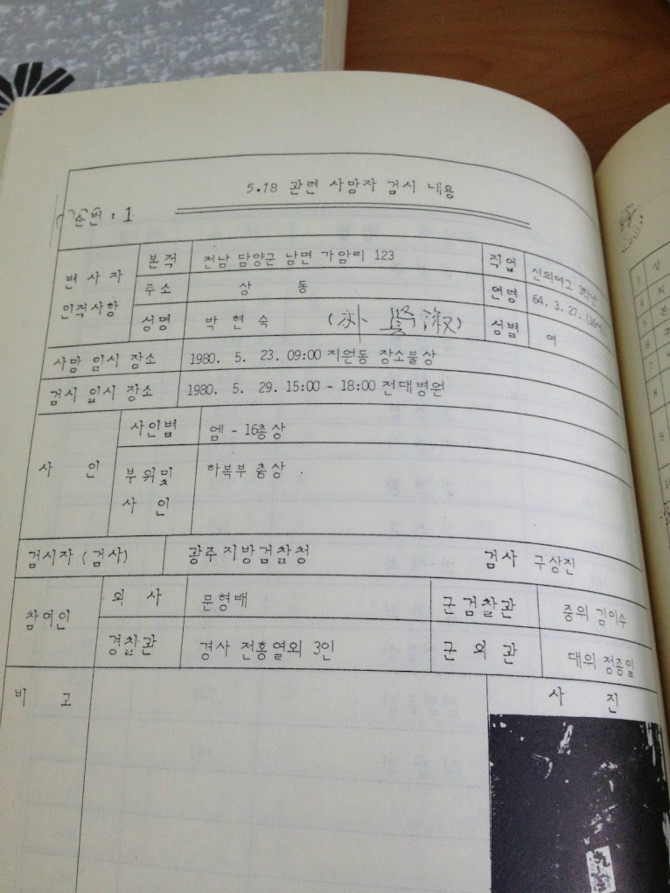 5.18 관련 사망자 검시 내용
순번 : 1
변사자 인적사항
본적 전남 담양군 남면 가암리 123
직업 신의여고 3학년
주소 상 동
연령 64. 3. 27.
성명 박현숙 (朴賢淑)
성별 여
사망 일시 장소 1980. 5. 23. 09:00 지원동 장소불상
검시 일시 장소 1980. 5. 29. 15:00 - 18:00 전대병원
사 인
사인별 엠 - 16총상
부위및 사 인 하복부 총상
검시자 (검사) 광주지방검찰청 검사 구상진
참여인
의 사 문형배
군검찰관 중위 김이수
경찰관 경사 전홍열외 3인
군 의 관 대위 정종일
비 고
사 진